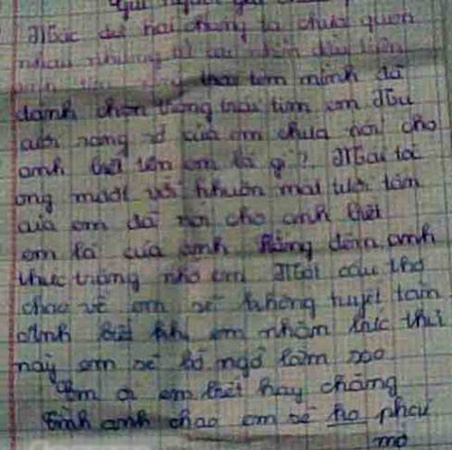 Gửi người gái
Mặc dù hai chúng ta chưa quen
nhau nhưng từ cái nhìn đầu tiên
trái tim mình đã
dành chọn trong trái tim em Nụ
cười rạng rỡ của em chưa nói cho
anh biết tên em là gì? Mái tóc
óng mượt với khuôn mặt tươi tắm
của em đã nói cho anh biết
em là của anh Hằng đêm anh
thức trắng nhớ em Một câu thơ
chao về em sẽ không tuyệt tam
Anh biết khi em nhậm bức thư
này em sẽ bỡ ngỡ lắm sao
Em ơi em biết hay chăng
Tình anh chao em sẽ ho phai
mờ